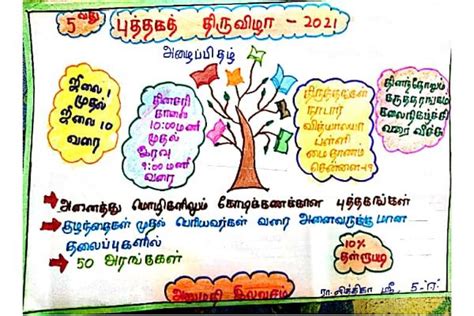 5 வது புத்தகத் திருவிழா - 2021
அழைப்பிதழ்
ஜூலை 1
முதல்
ஜூலை 10
வரை
தினசரி
காலை
10:00 மணி
முதல்
இரவு
9:00 மணி
வரை
நாடார்
வித்யாலயா
பள்ளி
மைதானம்
சென்னை-19
தினந்தோறும்
கருத்தரங்கம்
கலைநிகழ்ச்சி
→ அனைத்து மொழிகளிலும் கோடிக்கணக்கான புத்தகங்கள்
→ குழந்தைகள் முதல் பெரியவர்கள் வரை அனைவருக்குமான
தலைப்புகளில்
→ 50 அரங்கங்கள்
10%
தள்ளுபடி
அனுமதி இலவசம்